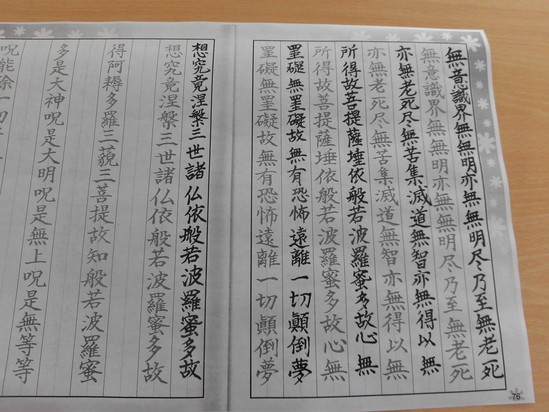 無意識界無無明亦無無明尽乃至無老死
無意識界無無明亦無無明尽乃至無老死
亦無老死尽無苦集滅道無智亦無得以無
亦無老死尽無苦集滅道無智亦無得以無
所得故菩提薩埵依般若波羅蜜多故心無
所得故菩提薩埵依般若波羅蜜多故心無
罣礙無罣礙故無有恐怖遠離一切顛倒夢
罣礙無罣礙故無有恐怖遠離一切顛倒夢
想究竟涅槃三世諸仏依般若波羅蜜多故
想究竟涅槃三世諸仏依般若波羅蜜多故
得阿耨多羅三藐三菩提故知般若波羅蜜
多是大神呪是大明呪是無上呪是無等等
呪能除一切
76